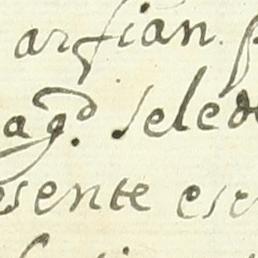 arfian. p
agd. selede
esente esc